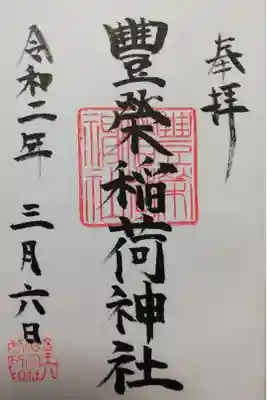 奉拝
豐榮稲荷神社
令和二年 三月六日